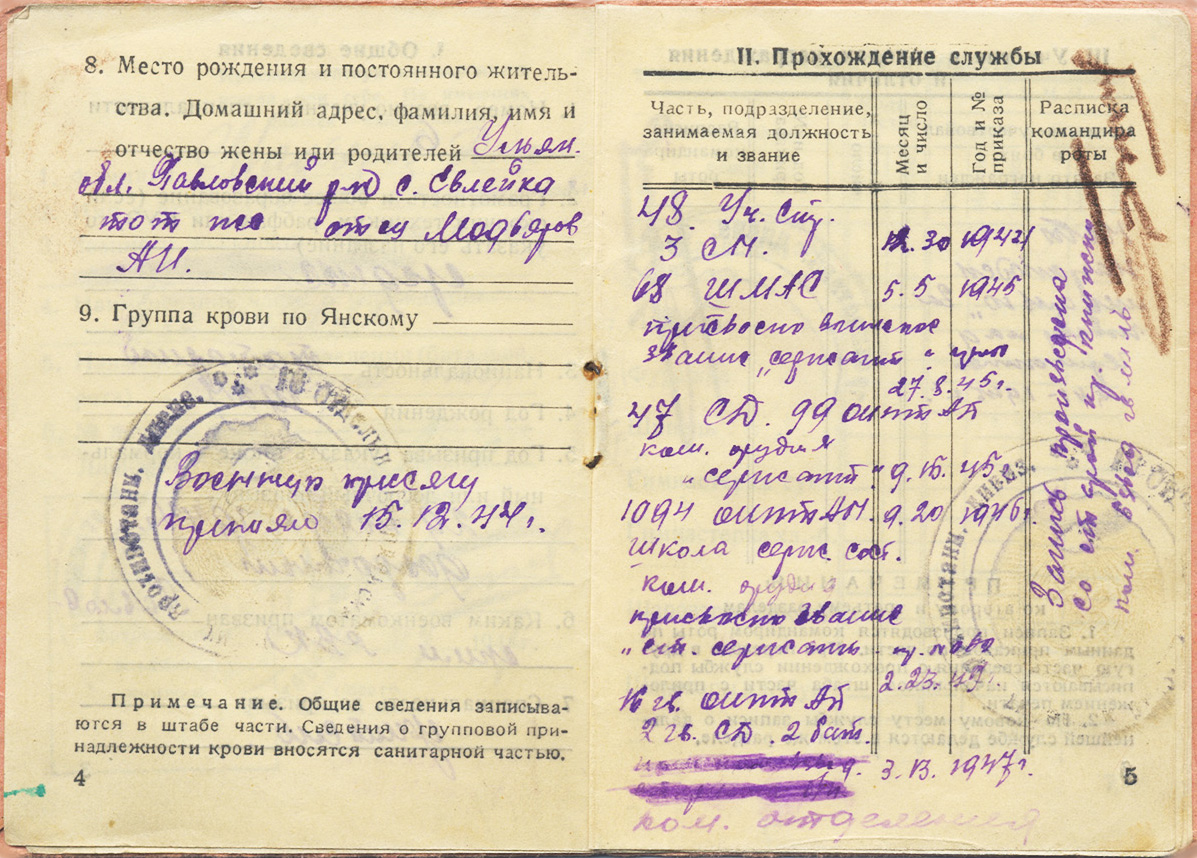 8. Место рождения и постоянного житель-
ства. Домашний адрес, фамилия, имя и
отчество жены или родителей Ульян.
обл. Павловский р-он с. Евлейка
тот же отец Модьяров
А.И.
9. Группа крови по Янскому
Военную присягу
принял 15.12.44 г.
Примечание. Общие сведения записыва-
ются в штабе части. Сведения о групповой при-
надлежности крови вносятся санитарной частью.
4
II. Прохождение службы
Часть, подразделение,
занимаемая должность
и звание
Месяц
и число
Год и №
приказа
Расписка
командира
роты
48. Уч. Стр.
3 СП. 12.30 1944
68 ШМАС 5.5 1945
присвоено воинское
звание „сержант"
27.8.45 г.
47 СД. 99 оиптАД
ком. орудия
„сержант". 9.15.45
1094 оиптАП. 9.20 1946 г.
Школа серж. сост.
ком. орудия
присвоено звание
„ст. сержант"
2.23.
16 гв. оиптАД
2 гв. СД. 2 бат.
3.13. 1947 г.
ком. отделения
Запись произведена
со старой кр. книжки
ком. взвод гв.
5